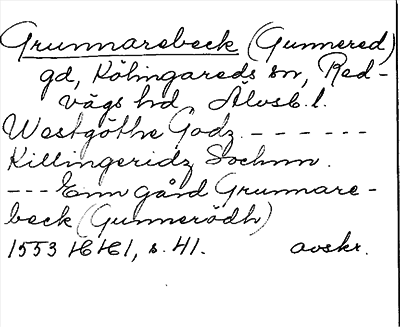 Grunnarebeck (Gunnered)
gd, Kölingareds sn, Red-
vägs hd, Älvsb. l.
Westgöthe Godz. - - - - - -
Killingeridz Sochnn.
--- Enn gård Grunnare-
beck (Gunnerödh)
1553 HH1, s. 41. avskr.